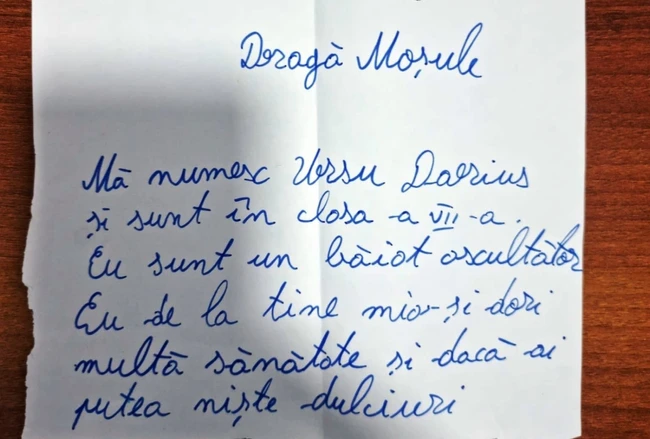 Dragă Moșule
Mă numesc Ursu Darius
și sunt în clasa -a VII-a.
Eu sunt un băiat ascultător
Eu de la tine mia-și dori
multă sănătate și dacă ai
putea niște dulciuri